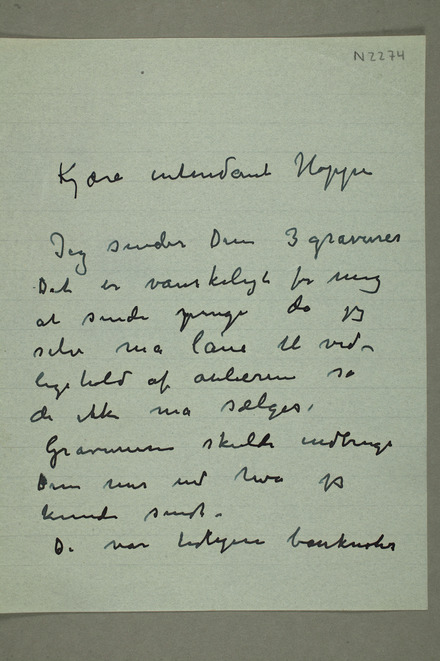 N2274
Kjære intendant Hoppe
Jeg sender Dem 3 gravurer
Det er vanskeligt for meg
at sende penge da jeg
selv må låne til ved-
ligehold af atelierene så
de ikke må sælges.
Gravurerne skulde indbringe
Dem mer end hva jeg
kunde sendt.
De var tidligere banknoter